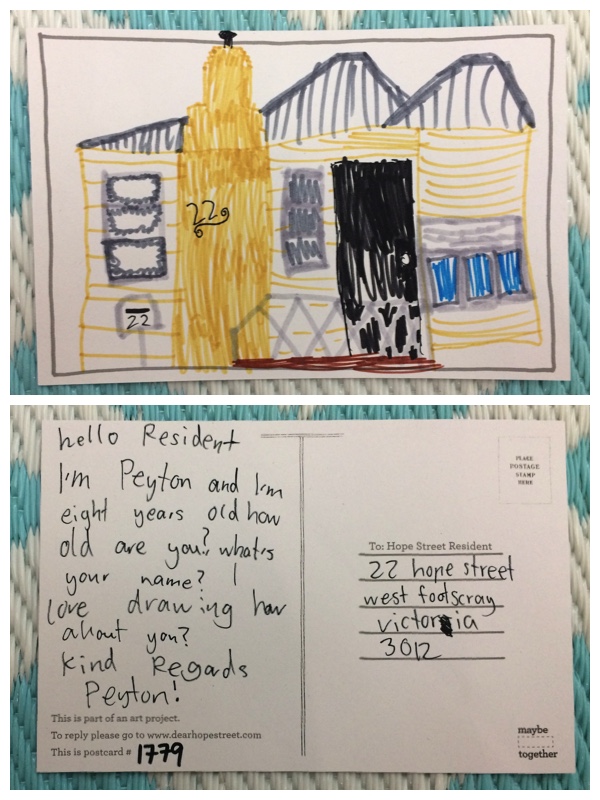 22
22
hello Resident
I'm Peyton and I'm
eight years old how
old are you? what's
your name? I
love drawing how
about you?
Kind Regards
Peyton!
This is part of an art project.
To reply please go to www.dearhopestreet.com
This is postcard # 1779
PLACE
POSTAGE
STAMP
HERE
To: Hope Street Resident
22 hope street
west footscray
victoria
3012
maybe
together